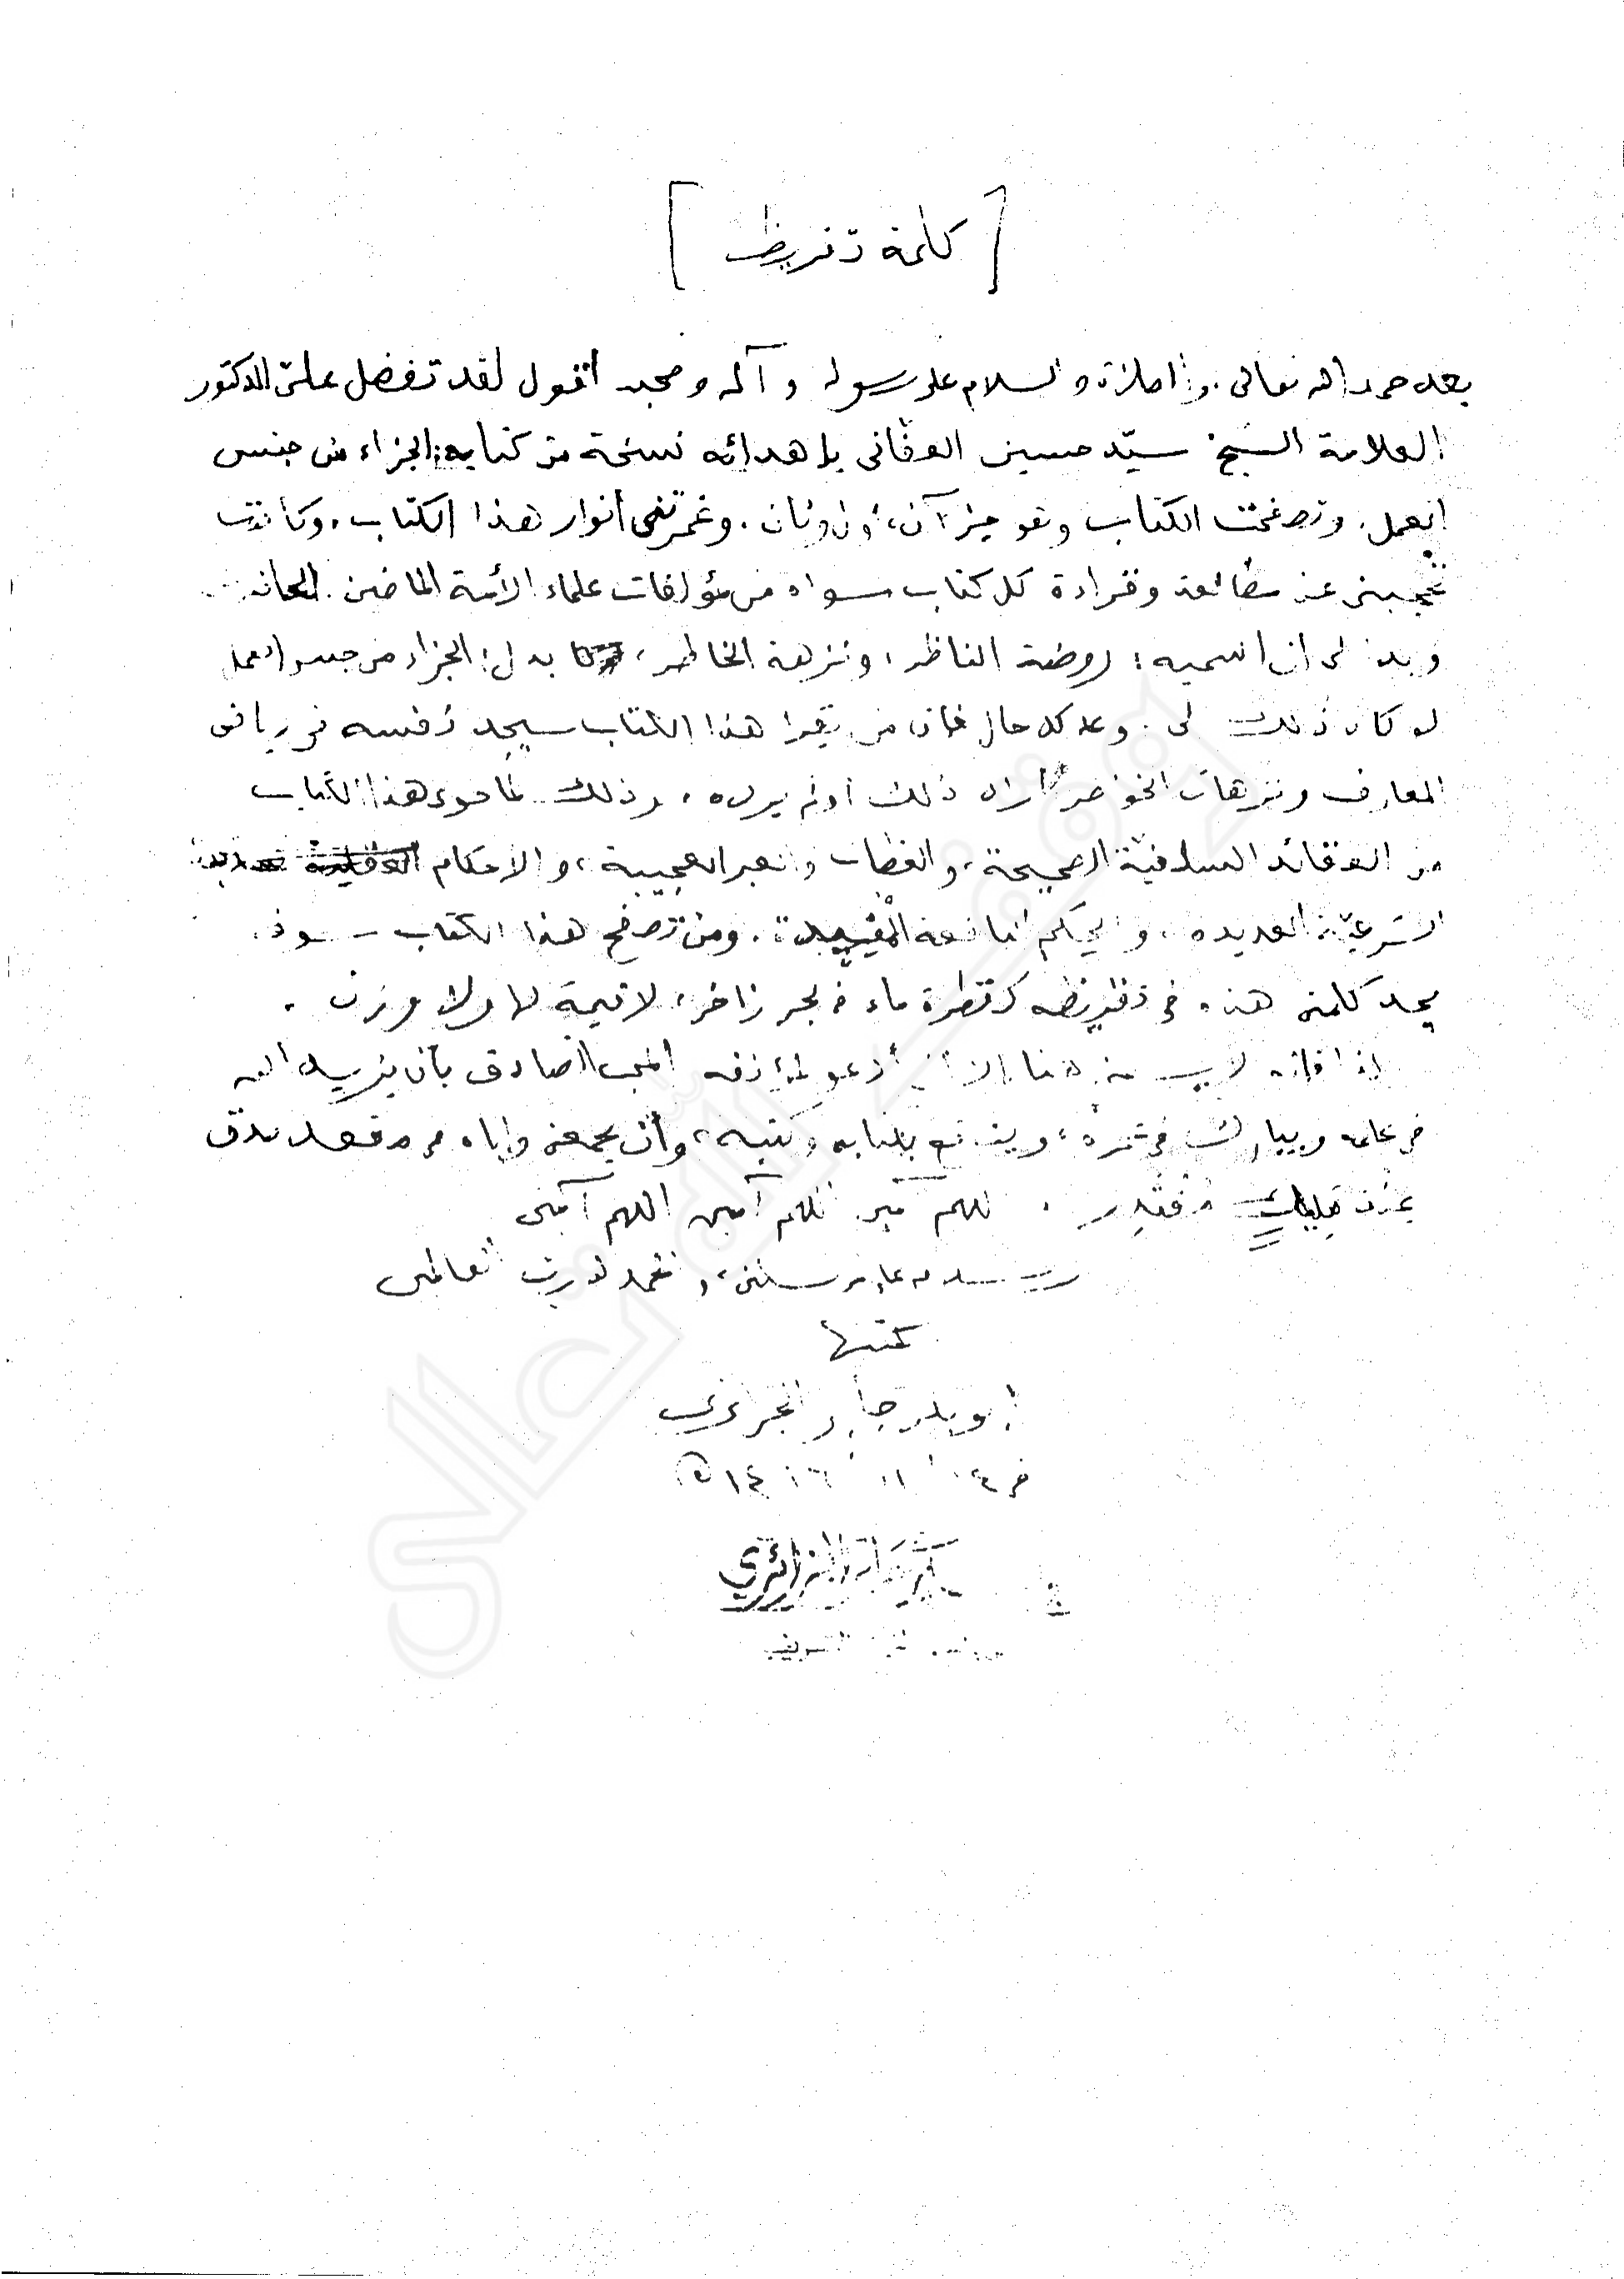 [كلمة تقريظ]
بعد حمد الله تعالى. والصلاة والسلام على رسوله وآله وصحبه أقول لقد تفضل عليّ الدكتور
العلامة الشيخ سيّد حسين العفاني بإهدائه نسخة من كتابه: الجزاء من جنس
العمل. وتصفحت الكتاب وهو جزآن، أول وثان. وغمرتني أنوار هذا الكتاب. وكادت
تحجبني عن مطالعة وقراءة كل كتاب سواه من مؤلفات علماء الأمة الماضين
وبدا لي أن اسميه: روضة الناظر، ونزهة الخاطر، بدل: الجزاء من جنس العمل
لو كان ذلك لي. وعلى كل حال فإن من يقرأ هذا الكتاب سيجد نفسه في رياض
المعارف ونزهات الخواطر أراد ذلك أو لم يرده، وذلك لما حوى هذا الكتاب
من العقائد السلفية الصحيحة، والعظات والعبر العجيبة، والأحكام
الشرعيّة العديدة، والحكم النافعة المفيدة. ومن تصفح هذا الكتاب سوف
يجد كلمتي هذه في تقريظه كقطرة ماء في بحر زاخر، لا قيمة لها ولا وزن.
لذا فإنه لا يسعني هنا إلا أن أدعو لمؤلفه المحب الصادق بأن يزيده الله
في علمه ويبارك في عمره، وينفع بكتابه وكتبه، وأن يجمعني وإياه في مقعد صدق
عند مليك مقتدر. اللهم آمين اللهم آمين اللهم آمين
وسلام على المرسلين، والحمد لله رب العالمين
كتبها
أبو بكر جابر الجزائري
في ١٤١٦ هـ